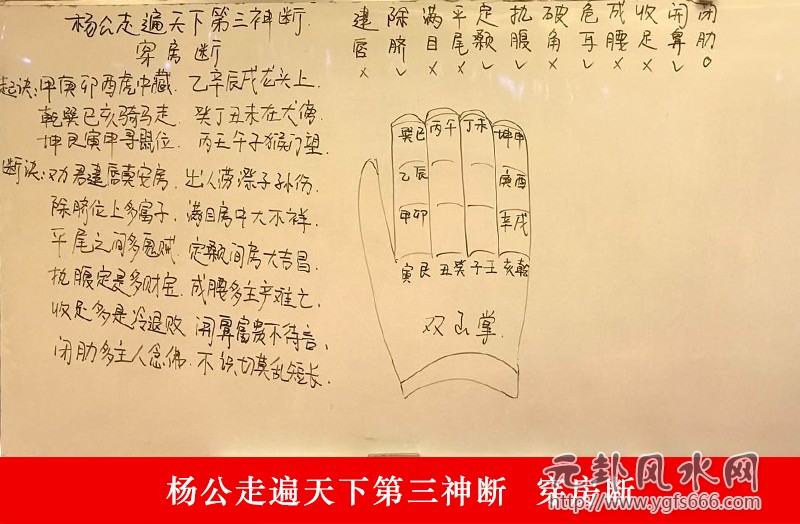 杨公走遍天下第三神断.
穿房断
起诀:甲庚卯酉虎中藏. 乙辛辰戌龙头上.
乾巽巳亥骑马走. 癸丁丑未在犬傍
坤艮寅甲寻鼠位. 丙壬午子猴门望.
断诀:劝君建唇莫安房. 出人痨瘵子孙伤.
除脐位上多富子. 满目房中大不祥.
平尾之间多鬼贼. 定颡间房大吉昌.
执腹定是多财宝. 成腰多主产难亡.
收足多是冷退败 闭鼻富贵不待言.
闭肋多主人念佛. 不识切莫乱短长.
建 除 满 平 定 执 破 危 成 收 闭 闭
唇 脐 目 尾 颡 腹 角 耳 腰 足 鼻 肋
× ✓ × × ✓ ✓ × ✓ × × ✓ ○
巽巳 丙午 丁未 坤申
乙辰 庚酉
甲卯 辛戌
寅艮 丑癸 子壬 亥乾
双山掌.
杨公走遍天下第三神断 穿房断
元卦风水网
http://www.ygfs666.com